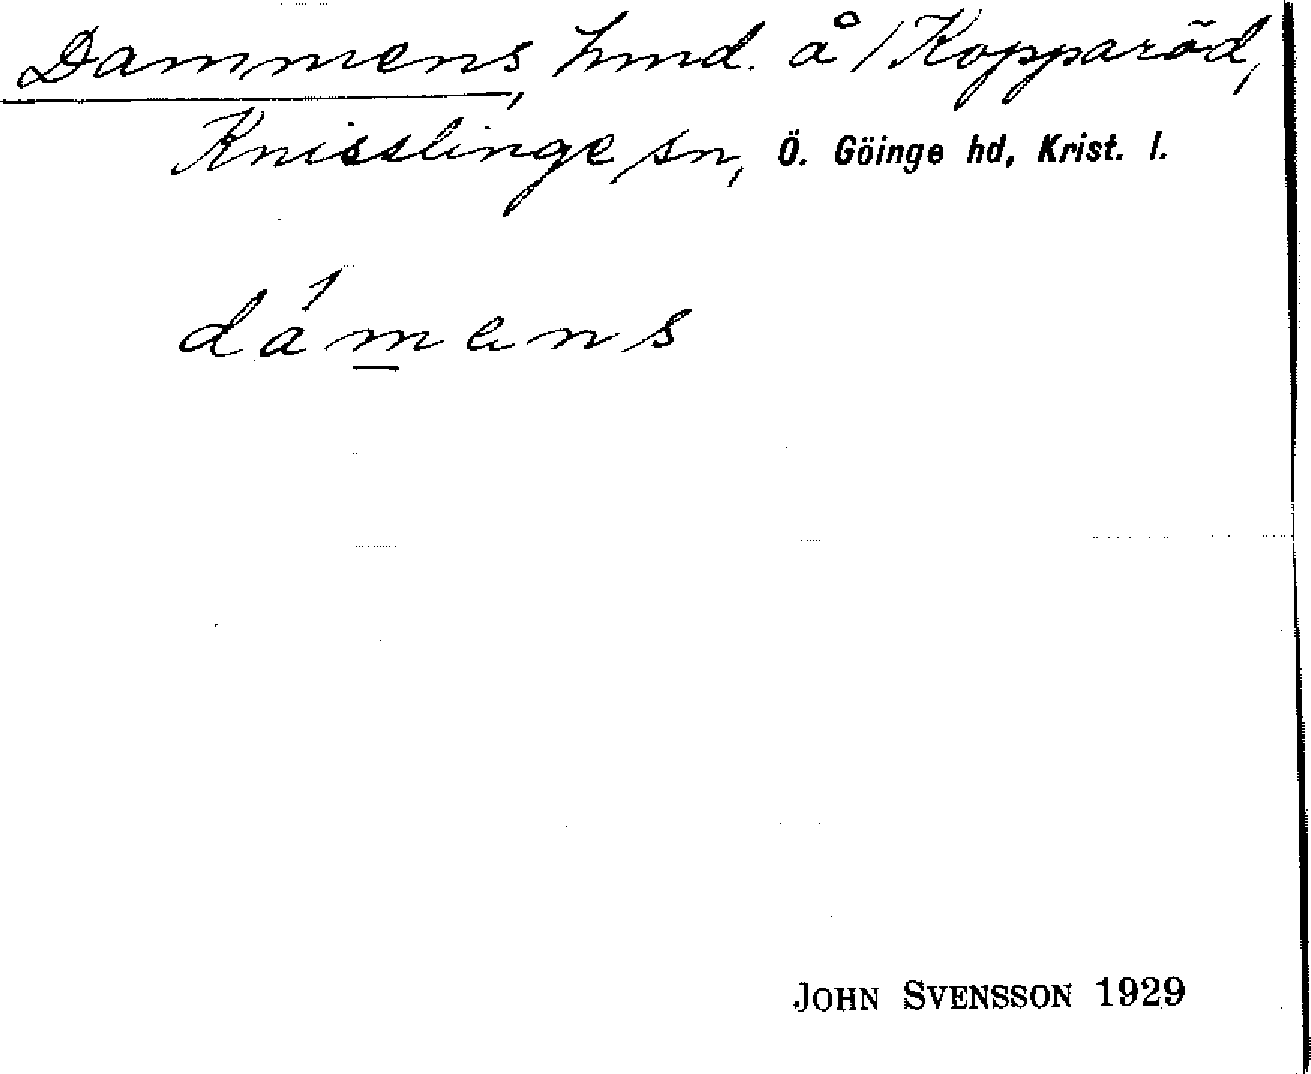 Dammens, hmd. å / Kopparöd,
Knisslinge sn, Ö. Göinge hd, Krist. l.
dámens
JOHN SVENSSON 1929